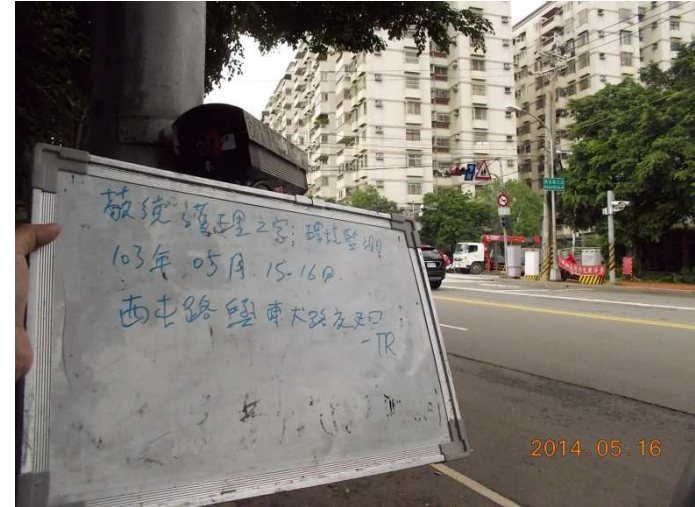 敬德護理之家;環境監測
103年.05月.15-16日.
西屯路與東大路交叉口
-TR
2014.05.16